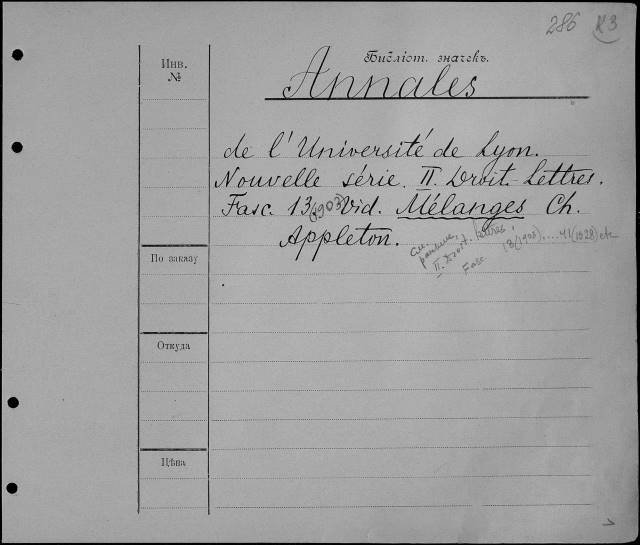 286 K3
Инв.
№
Библіот. значекъ.
Annales
de l'Université de Lyon.
Nouvelle série. II. Droit. Lettres.
Fasc. 13 (1903) Vid. Mélanges Ch.
Appleton.
См.
раньше,
II. Droit. Lettres,
Fasc (8/1903)....41(1928) etc
По заказу
Откуда
Цѣна